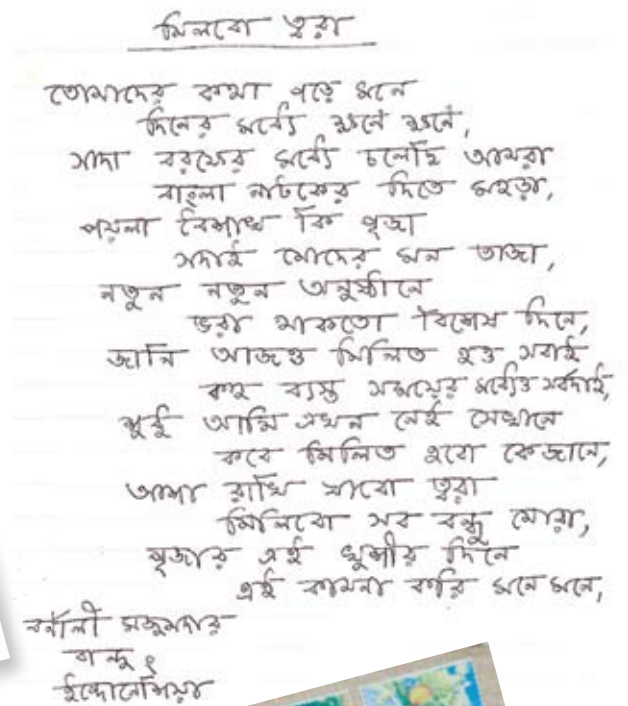 মিলবো ত্বরা
তোমাদের কথা পড়ে মনে
দিনের মধ্যে ক্ষনে ক্ষনে,
সাদা বরফের মধ্যে চলেছি আমরা
বাংলা নাটকের দিতে মহড়া,
পয়লা বৈশাখ কি পূজা
সদাই মোদের মন তাজা,
নতুন নতুন অনুষ্ঠানে
ভরা থাকতো বিশেষ দিনে,
জানি আজও মিলিত হও সবাই
ব্যস্ত সময়ের মধ্যেও সর্বদাই,
শুধু আমি এখন নেই সেখানে
কবে মিলিত হবো কেজানে,
আশা রাখি যাবো ত্বরা
মিলিবো সব বন্ধু মোরা,
পূজার এই খুশীর দিনে
এই কামনা করি মনে মনে,
বর্নালী মজুমদার
বান্দুং
ইন্দোনেশিয়া